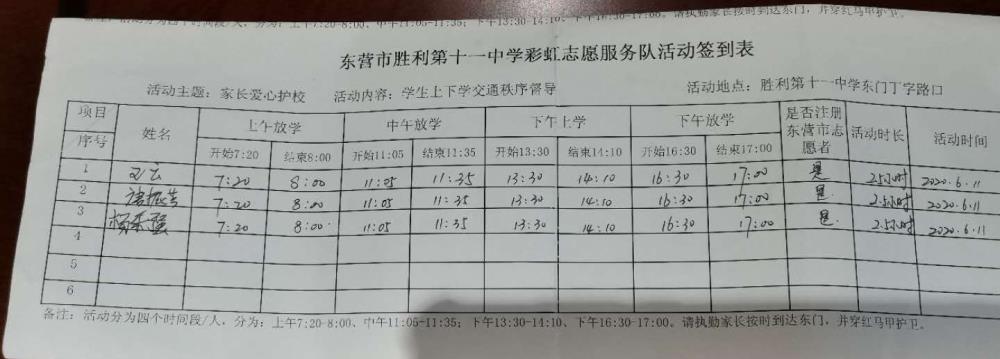 东营市胜利第十一中学彩虹志愿服务队活动签到表
活动主题：家长爱心护校 活动内容：学生上下学交通秩序督导 活动地点：胜利第十一中学东门丁字路口
项目 序号 姓名 上午放学 中午放学 下午上学 下午放学 是否注册东营市志愿者 活动时长 活动时间
开始7:20 结束8:00 开始11:05 结束11:35 开始13:30 结束14:10 开始16:30 结束17:00
1 7:20 8:00 11:05 11:35 13:30 14:10 16:30 17:00 是 2.5小时 2020.6.11
2 7:20 8:00 11:05 11:35 13:30 14:10 16:30 17:00 是 2.5小时 2020.6.11
3 7:20 8:00 11:05 11:35 13:30 14:10 16:30 17:00 是 2.5小时 2020.6.11
4
5
6
备注：活动分为四个时间段/人，分为：上午7:20-8:00、中午11:05-11:35；下午13:30-14:10、下午16:30-17:00。请执勤家长按时到达东门，并穿红马甲护卫。